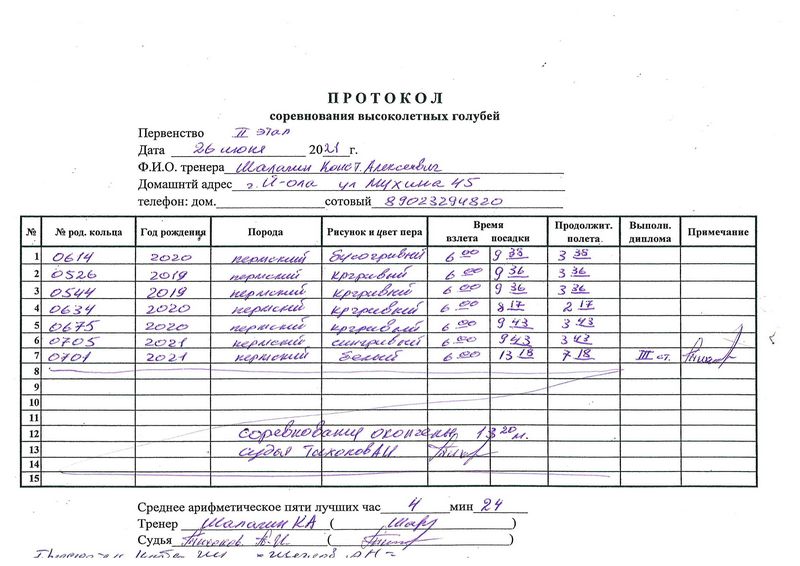 ПРОТОКОЛ
соревнования высоколетных голубей
Первенство II этап
Дата 26 июня 2021 г.
Ф.И.О. тренера Шалагин Конст. Алексеевич
Домашнтй адрес г. Й-ола ул Мухина 45
телефон: дом. сотовый 89023294820
№ № род. кольца Год рождения Порода Рисунок и цвет пера Время взлета посадки Продолжит. полета. Выполн. диплома Примечание
1 0614 2020 пермский бусогривый 6 00 9 35 3 35
2 0526 2019 пермский кргривый 6 00 9 36 3 36
3 0544 2019 пермский кргривый 6 00 9 36 3 36
4 0634 2020 пермский кргривый 6 00 8 17 2 17
5 0675 2020 пермский кргривый 6 00 9 43 3 43
6 0705 2021 пермский сингривый 6 00 9 43 3 43
7 0701 2021 пермский белый 6 00 13 18 7 18 III ст.
8
9
10
11
12 соревнования окончены 13 20 м.
13 судья Тихонов А.И.
14
15
Среднее арифметическое пяти лучших час 4 мин 24
Тренер Шалагин КА ( )
Судья Тихонов. А.И. ( )